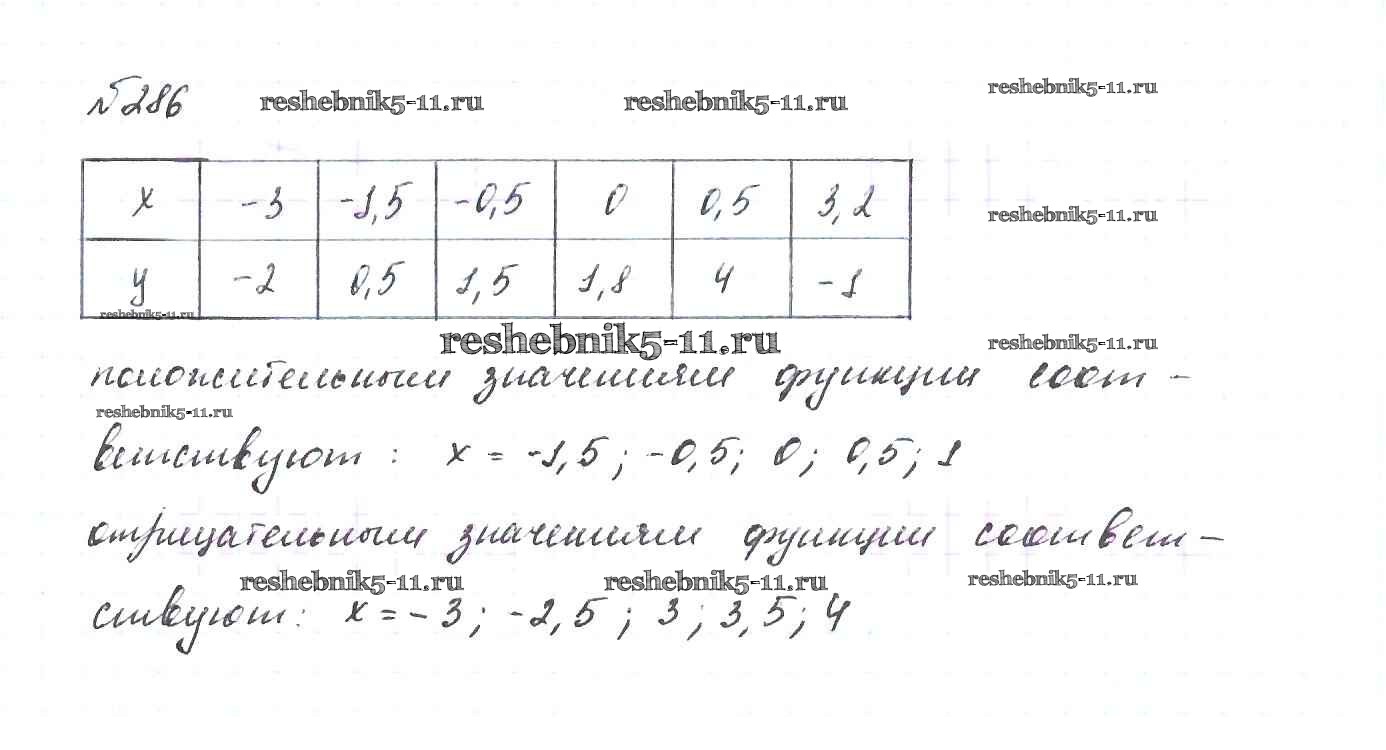 №286 reshebnik5-11.ru reshebnik5-11.ru reshebnik5-11.ru
x -3 -1,5 -0,5 0 0,5 3,2 reshebnik5-11.ru
y -2 0,5 1,5 1,8 4 -1
reshebnik5-11.ru
reshebnik5-11.ru reshebnik5-11.ru
положительным значениям функции соот-
reshebnik5-11.ru
ветствуют: x = -1,5; -0,5; 0; 0,5; 1
отрицательным значениям функции соответ-
reshebnik5-11.ru reshebnik5-11.ru reshebnik5-11.ru
ствуют: x = -3; -2,5; 3; 3,5; 4